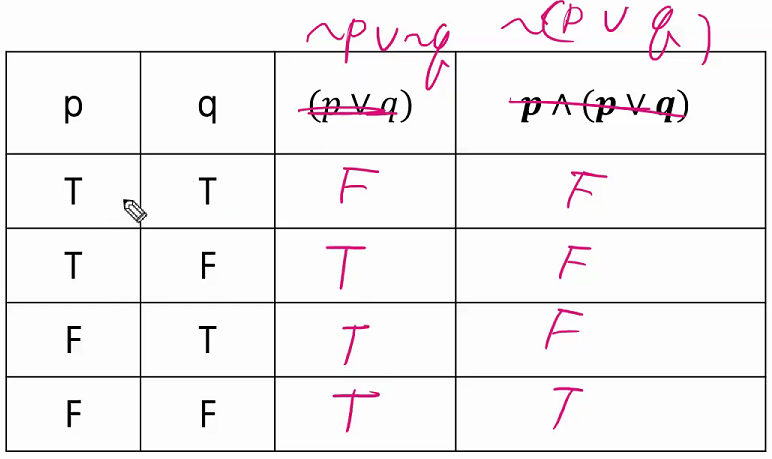 ~p∨~q ~(p ∨ q)
p q (p ∨ q) p ∧ (p ∨ q)
T T F F
T F T F
F T T F
F F T T